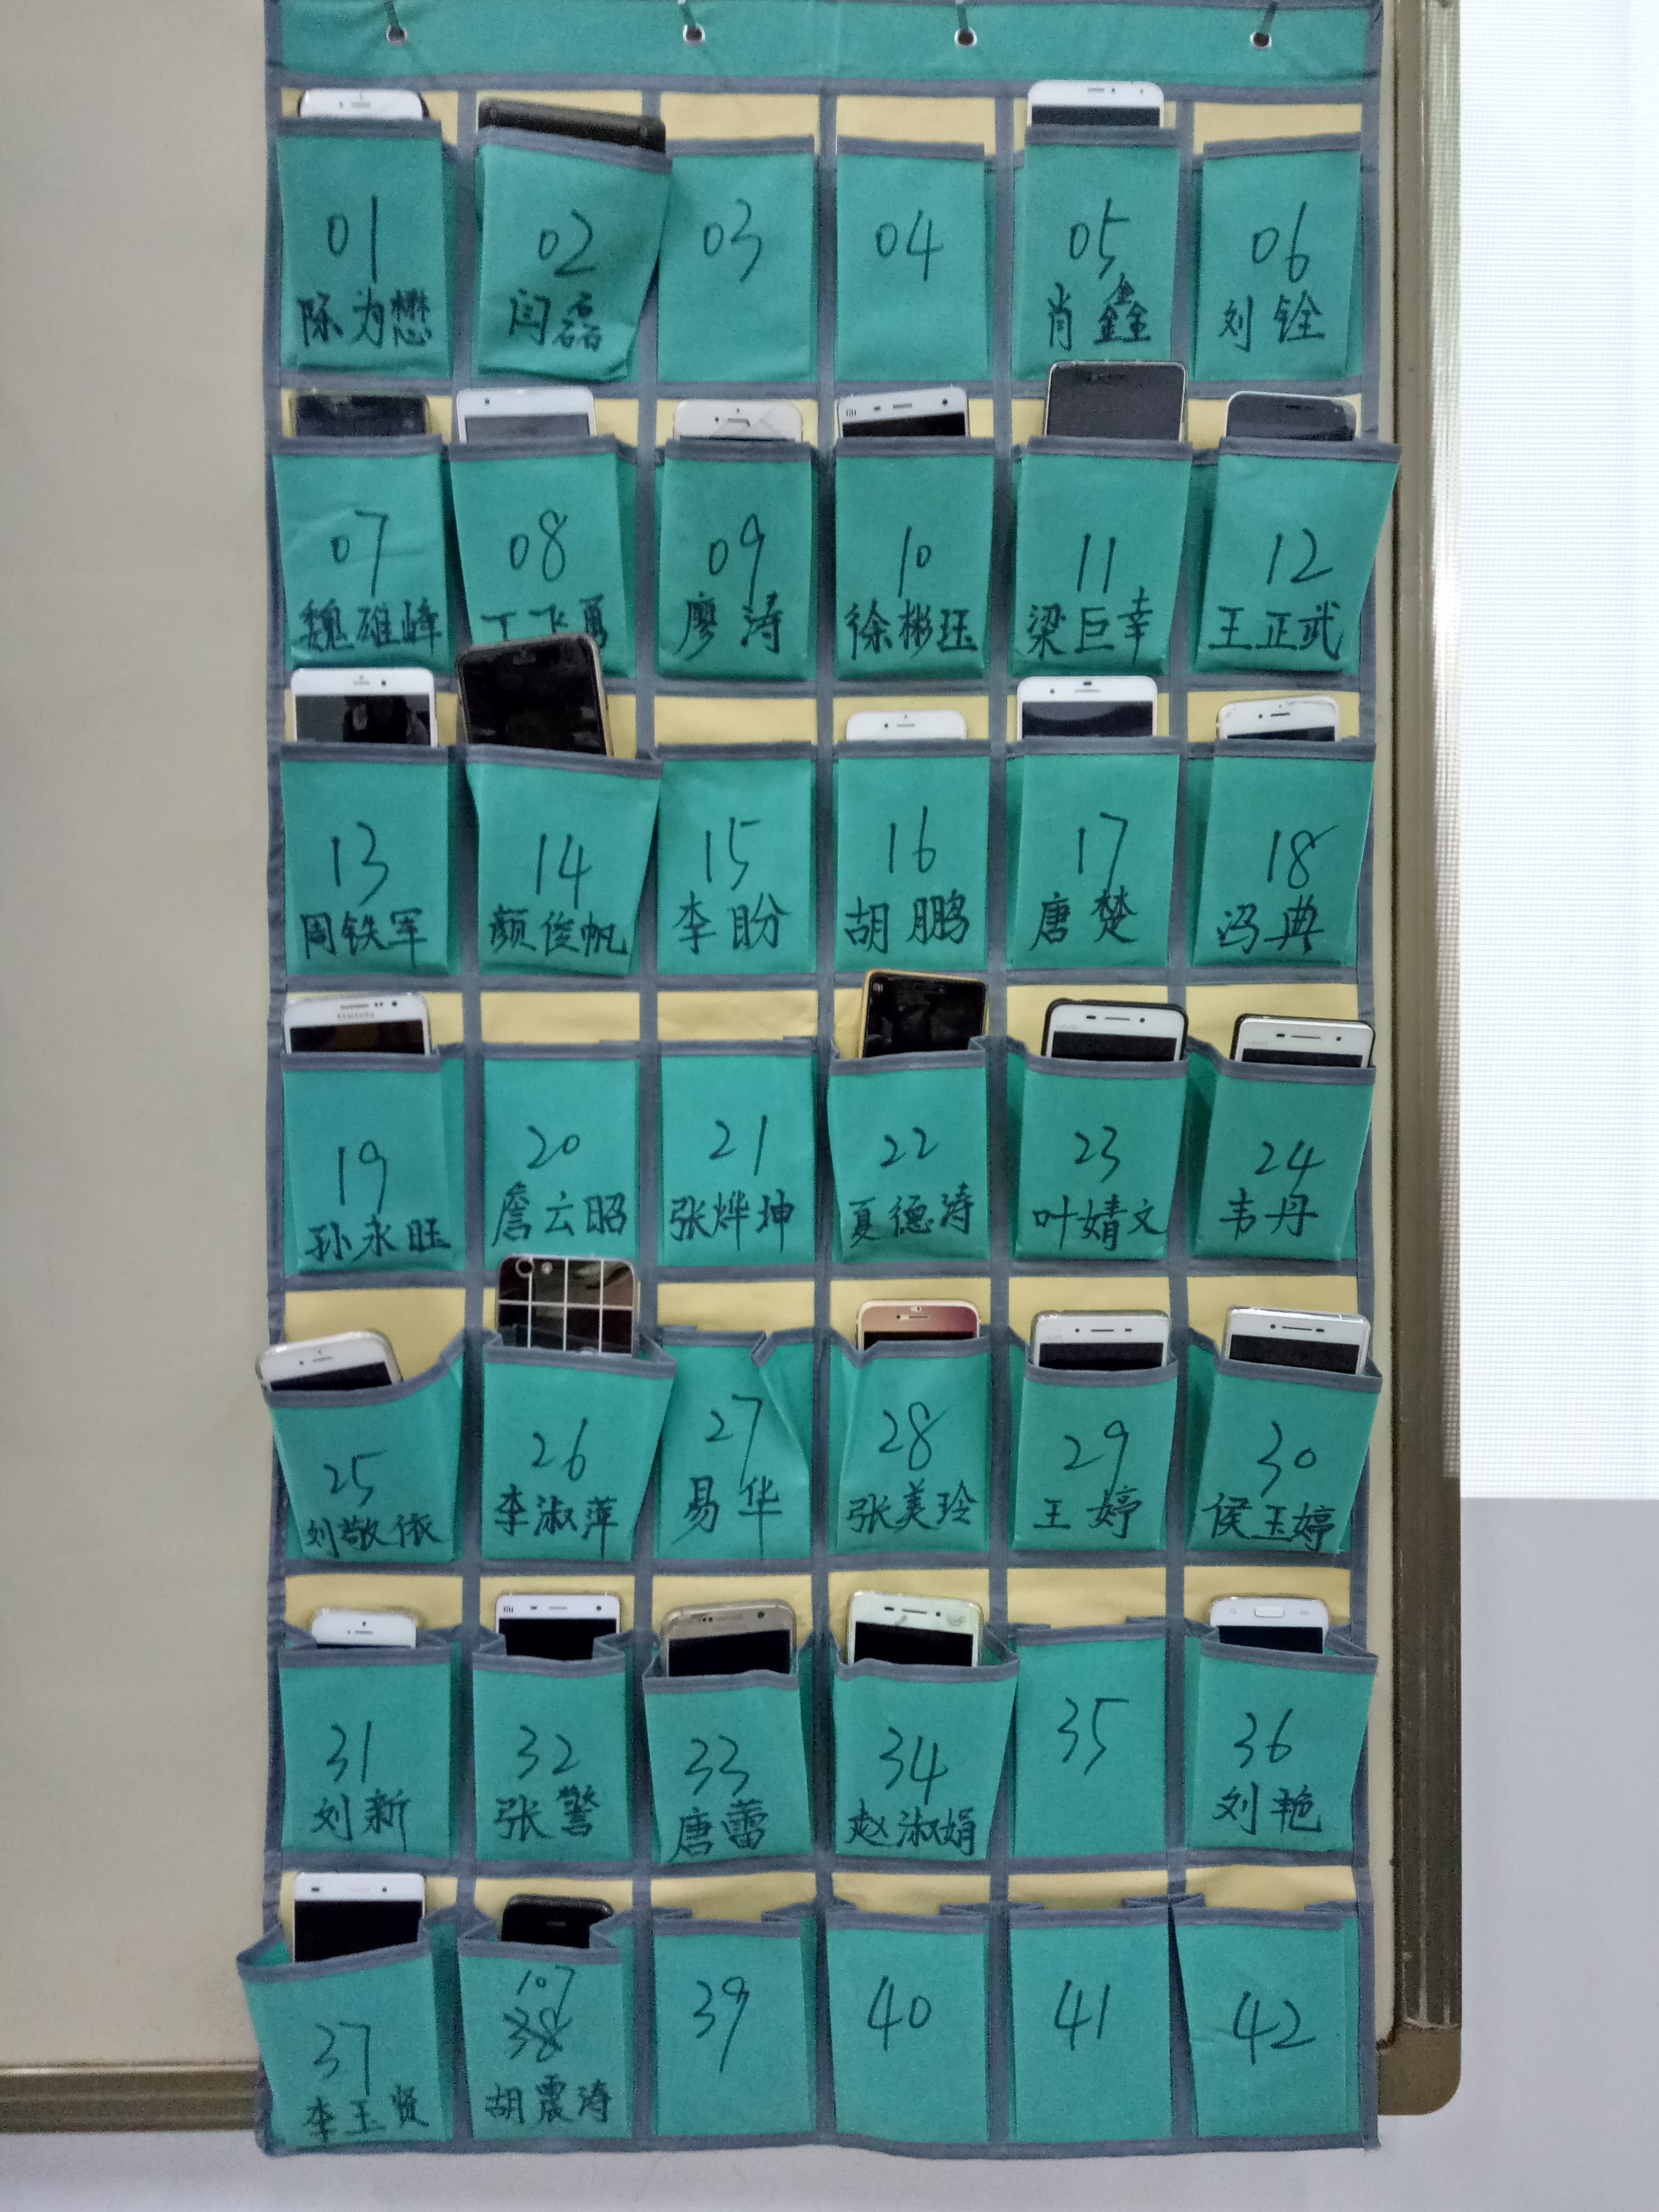 01
陈为懋
02
闫磊
03
04
05
肖鑫
06
刘铨
07
魏雄峰
08
丁飞勇
09
廖涛
mi
10
徐彬珏
11
梁巨幸
12
王正武
13
周铁军
14
颜俊帆
15
李盼
16
胡鹏
17
唐楚
18
冯典
SAMSUNG
19
孙永旺
20
詹云昭
21
张烨坤
mi
22
夏德涛
vivo
23
叶婧文
vivo
24
韦丹
25
刘敬依
26
李淑萍
27
易华
28
张美玲
vivo
29
王婷
30
侯玉婷
31
刘新
mi
32
张警
33
唐蕾
34
赵淑娟
35
36
刘艳
37
李玉贤
107
38
胡震涛
39
40
41
42